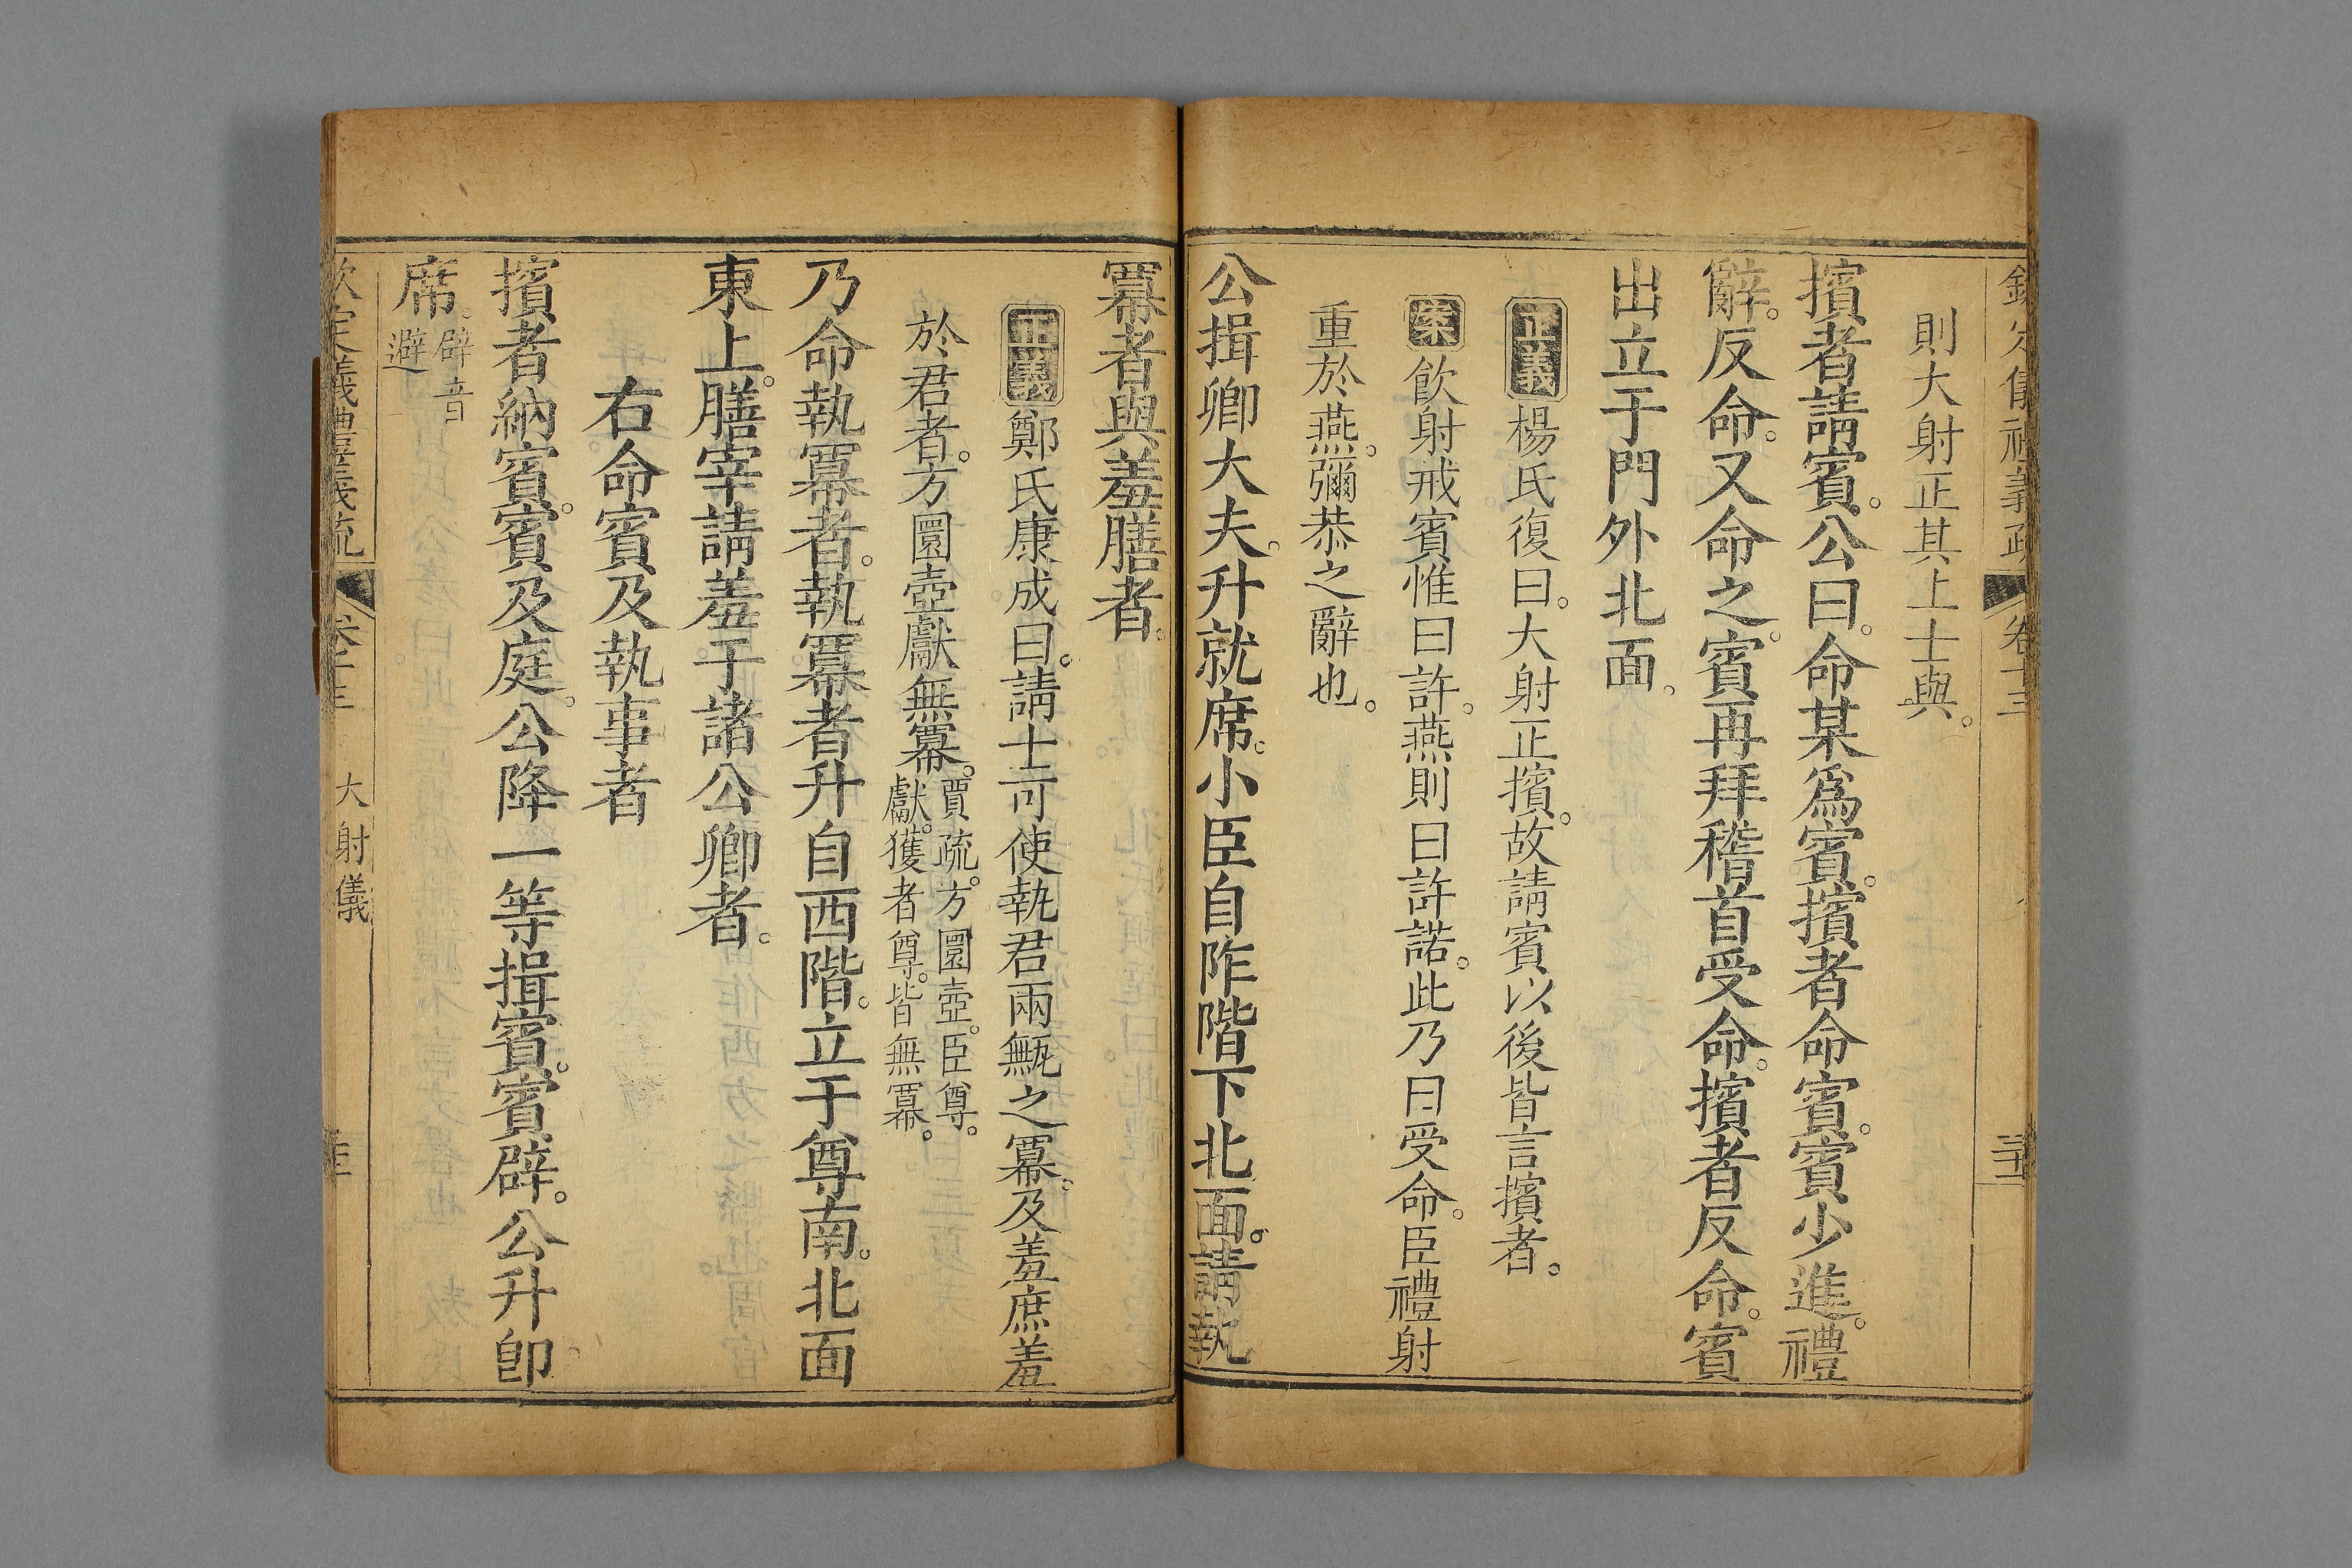 欽定儀禮義疏 卷十三
則大射正其上士與。
擯者請賓。公曰。命某爲賓。擯者命賓。賓少進。禮
辭。反命。又命之。賓再拜稽首受命。擯者反命。賓
出立于門外北面。
正義 楊氏復曰。大射正擯。故請賓以後皆言擯者。
案 飲射戒賓惟曰許。燕則曰許諾。此乃曰受命。臣禮射
重於燕。彌恭之辭也。
公揖卿大夫。升就席。小臣自阼階下北面。請執
冪者與羞膳者。
正義 鄭氏康成曰。請士可使執君兩甒之冪。及羞庶羞
於君者。方圜壺獻無冪。賈疏。方圜壺。臣尊。獻。獲者尊。皆無冪。
乃命執冪者。執冪者升自西階。立于尊南。北面
東上。膳宰請羞于諸公卿者。
右命賓及執事者
擯者納賓。賓及庭。公降一等揖賓。賓辟。公升卽
席。辟音避
欽定儀禮義疏 卷十三 大射儀